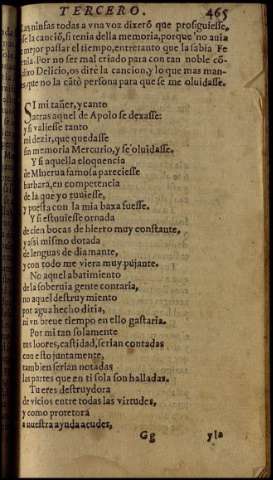 TERCERO. 465
Las ninfas todas a vna voz dixerõ que prosiguiesse,
se la canciõ, si tenia della memoria, porque no auia
mejor passar el tiempo, entretanto que la sabia Fe
nia. Por no ser mal criado para con tan noble cõ-
diro Delicio, os dirè la cancion, y lo que mas man-
que no la cãtò persona para que se me oluidasse.
SI mi tañer, y canto
Satras aquel de Apolo se dexasse:
y si valiesse tanto
mi dezir, que quedasse
en memoria Mercurio, y se oluidasse.
Y si aquella eloquencia
de Minerua famosa pareciesse
barbara, en competencia
de la que yo tuuiesse,
y puesta con la mia baxa fuesse.
Y si estuuiesse ornada
de cien bocas de hierro muy constante,
y assi mismo dotada
de lenguas de diamante,
y con todo me viera muy pujante.
No aquel abatimiento
de la soberuia gente contaria,
no aquel destruymiento
por agua hecho diria,
ni vn breue tiempo en ello gastaria.
Por mi tan solamente
tus loores, castidad, serian contadas
con esto juntamente,
tambien serian notadas
las partes que en ti sola son halladas.
Tu eres destruydora
de vicios entre todas las virtudes,
y como protetora
a nuestra ayuda acudes,
Gg y la